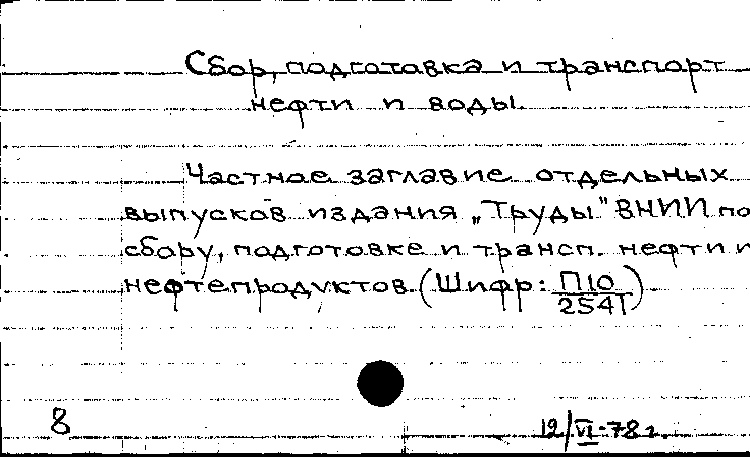 Сбор, подготовка и транспорт
нефти и воды.
Частное заглавие отдельных
выпусков издания „Труды" ВНИИ по
сбору, подготовке и трансп. нефти и
нефтепродуктов. (Шифр: П10/254Т)
8
12/VI-78 г.